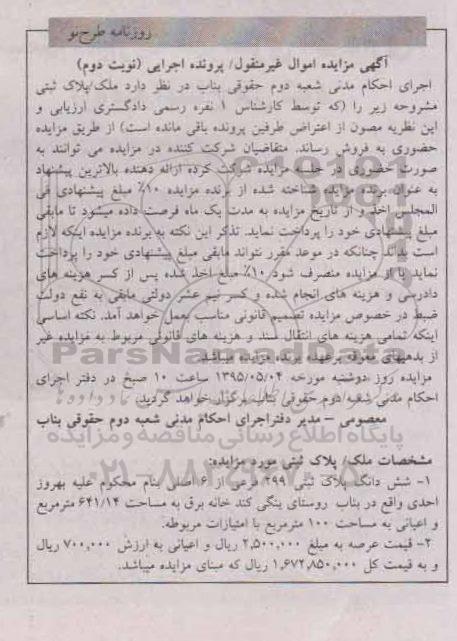 روزنامه طرح نو
آگهی مزایده اموال غیرمنقول/ پرونده اجرایی (نوبت دوم)
اجرای احکام مدنی شعبه دوم حقوقی بناب در نظر دارد ملک/پلاک ثبتی
مشروحه زیر را (که توسط کارشناس ۱ نفره رسمی دادگستری ارزیابی و
این نظریه مصون از اعتراض طرفین پرونده باقی مانده است) از طریق مزایده
حضوری به فروش رساند. متقاضیان شرکت کننده در مزایده می توانند به
صورت حضوری در جلسه مزایده شرکت کرده ارائه دهنده بالاترین پیشنهاد
به عنوان برنده مزایده شناخته شده از برنده مزایده ۱۰٪ مبلغ پیشنهادی فی
المجلس اخذ و از تاریخ مزایده به مدت یک ماه فرصت داده میشود تا مابقی
مبلغ پیشنهادی خود را پرداخت نماید. تذکر این نکته به برنده مزایده اینکه لازم
است بداند چنانکه در موعد مقرر نتواند مابقی مبلغ پیشنهادی خود را پرداخت
نماید یا از مزایده منصرف شود ۱۰٪ مبلغ اخذ شده پس از کسر هزینه های
دادرسی و هزینه های انجام شده و کسر نیم عشر دولتی مابقی به نفع دولت
ضبط در خصوص مزایده تصمیم قانونی مناسب بعمل خواهد آمد. نکته اساسی
اینکه تمامی هزینه های انتقال سند و هزینه های قانونی مربوط به مزایده غیر
از بدهیهای معوقه برعهده برنده مزایده میباشد.
ParsNamadData
مزایده روز دوشنبه مورخه ۱۳۹۵/۰۵/۰۴ ساعت ۱۰ صبح در دفتر اجرای
احکام مدنی شعبه دوم حقوقی بناب برگزار خواهد گردید.
معصومی – مدیر دفتراجرای احکام مدنی شعبه دوم حقوقی بناب
پایگاه اطلاع رسانی مناقصه و مزایده
مشخصات ملک/ پلاک ثبتی مورد مزایده:
۱- شش دانگ پلاک ثبتی ۲۹۹ فرعی از ۶ اصلی بنام محکوم علیه بهروز
احدی واقع در بناب روستای ینگی کند خانه برق به مساحت ۶۴۱/۱۴ مترمربع
و اعیانی به مساحت ۱۰۰ مترمربع با امتیازات مربوطه.
۲- قیمت عرصه به مبلغ ۲,۵۰۰,۰۰۰ ریال و اعیانی به ارزش ۷۰۰,۰۰۰ ریال
و به قیمت کل ۱,۶۷۲,۸۵۰,۰۰۰ ریال که مبنای مزایده میباشد.